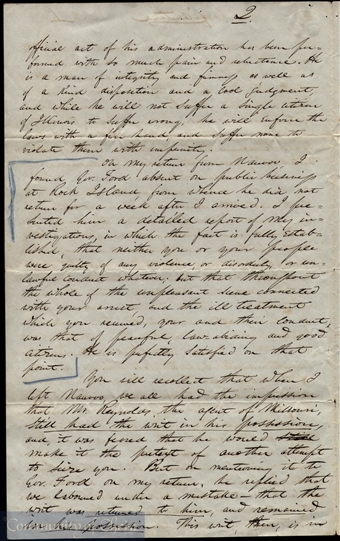 2
official act of his administration has been per-
formed with so much pain and reluctance. He
is a man of integrity and firmness, as well as
of a kind disposition and a cool judgment,
and while he will not suffer a single citizen
of Illinois to suffer wrong, he will enforce the
laws with a firm hand, and suffer none to
violate them with impunity.
On my return from Nauvoo, I
found Gov. Ford absent on public business
at Rock Island from whence he did not
return for a week after I arrived. I pre-
sented him a detailed report of my in-
vestigations, in which the fact is fully estab-
lished, that neither you or your people
were guilty of any violence or disorderly or un-
lawful conduct whatever. but that throughout
the whole of the unpleasant scene connected
with your arrest, and the ill treatment
which you received, your and their conduct,
was that of peaceful, law-abiding and good
citizens. He is perfectly satisfied on that
point.
You will recollect that when I
left Nauvoo, we all had the impression
that Mr. Reynolds, the agent of Missouri,
still had the writ in his possession,
and, it was feared that he would
make it the pretext of another attempt
to seize you. But on mentioning it to
Gov. Ford on my return, he replied that
we labored under a mistake – that the
writ was returned to him, and remained
in his possession. This writ, then, is in